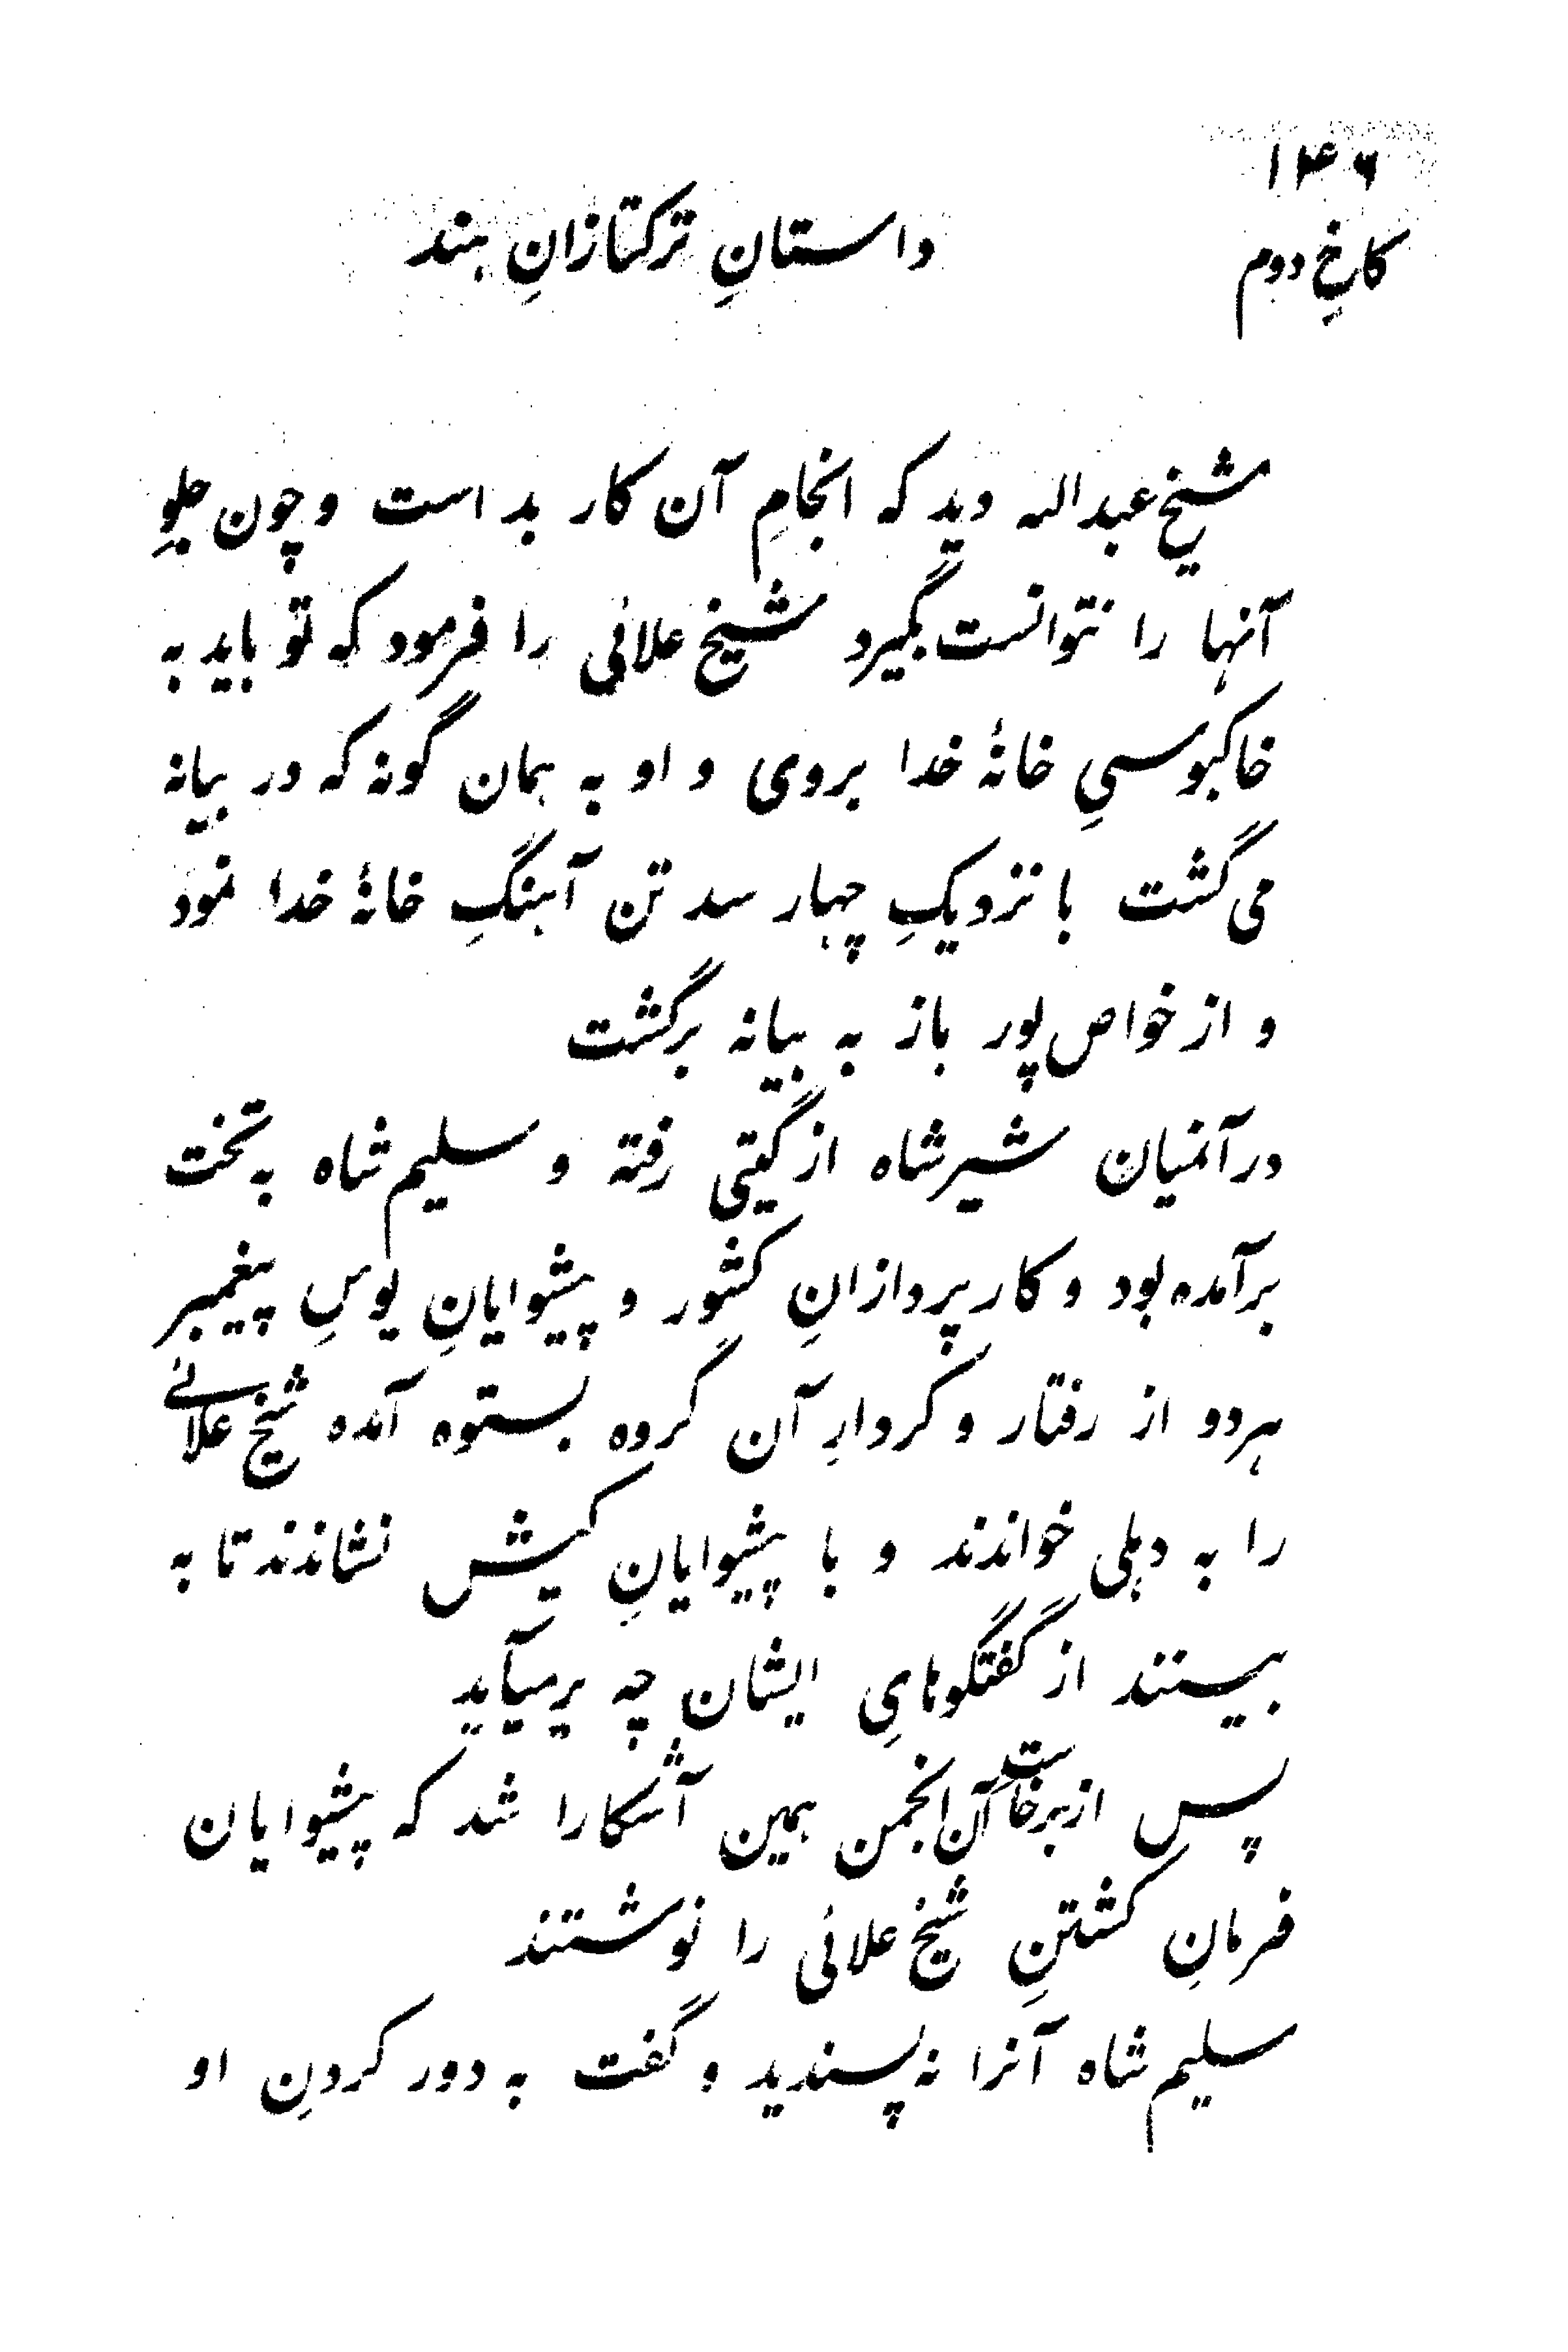 ۱۴۶
داستانِ ترکتازانِ هند
کاخِ دوم
شیخ عبداله دید که انجامِ آن کار بد است و چون جلوِ
آنها را نتوانست بگیرد شیخ علائی را فرمود که تو باید به
خاکبوسیِ خانۀ خدا بروی و او به همان گونه که در بیانه
می گشت با نزدیکِ چهار سد تن آهنگِ خانۀ خدا نمود
و از خواص پور باز به بیانه برگشت
در آنمیان شیر شاه از گیتی رفته و سلیم شاه به تخت
برآمده بود و کار پردازانِ کشور و پیشوایانِ یوسِ پیغمبر
هر دو از رفتار و کردارِ آن گروه بستوه آمده شیخ علائی
را به دهلی خواندند و با پیشوایانِ کیش نشاندند تا به
بینند از گفتگوهایِ ایشان چه برمیآید
پس از برخاست آن انجمن همین آشکارا شد که پیشوایان
فرمانِ کشتنِ شیخ علائی را نوشتند
سلیم شاه آنرا نه پسندید و گفت به دور کردنِ او